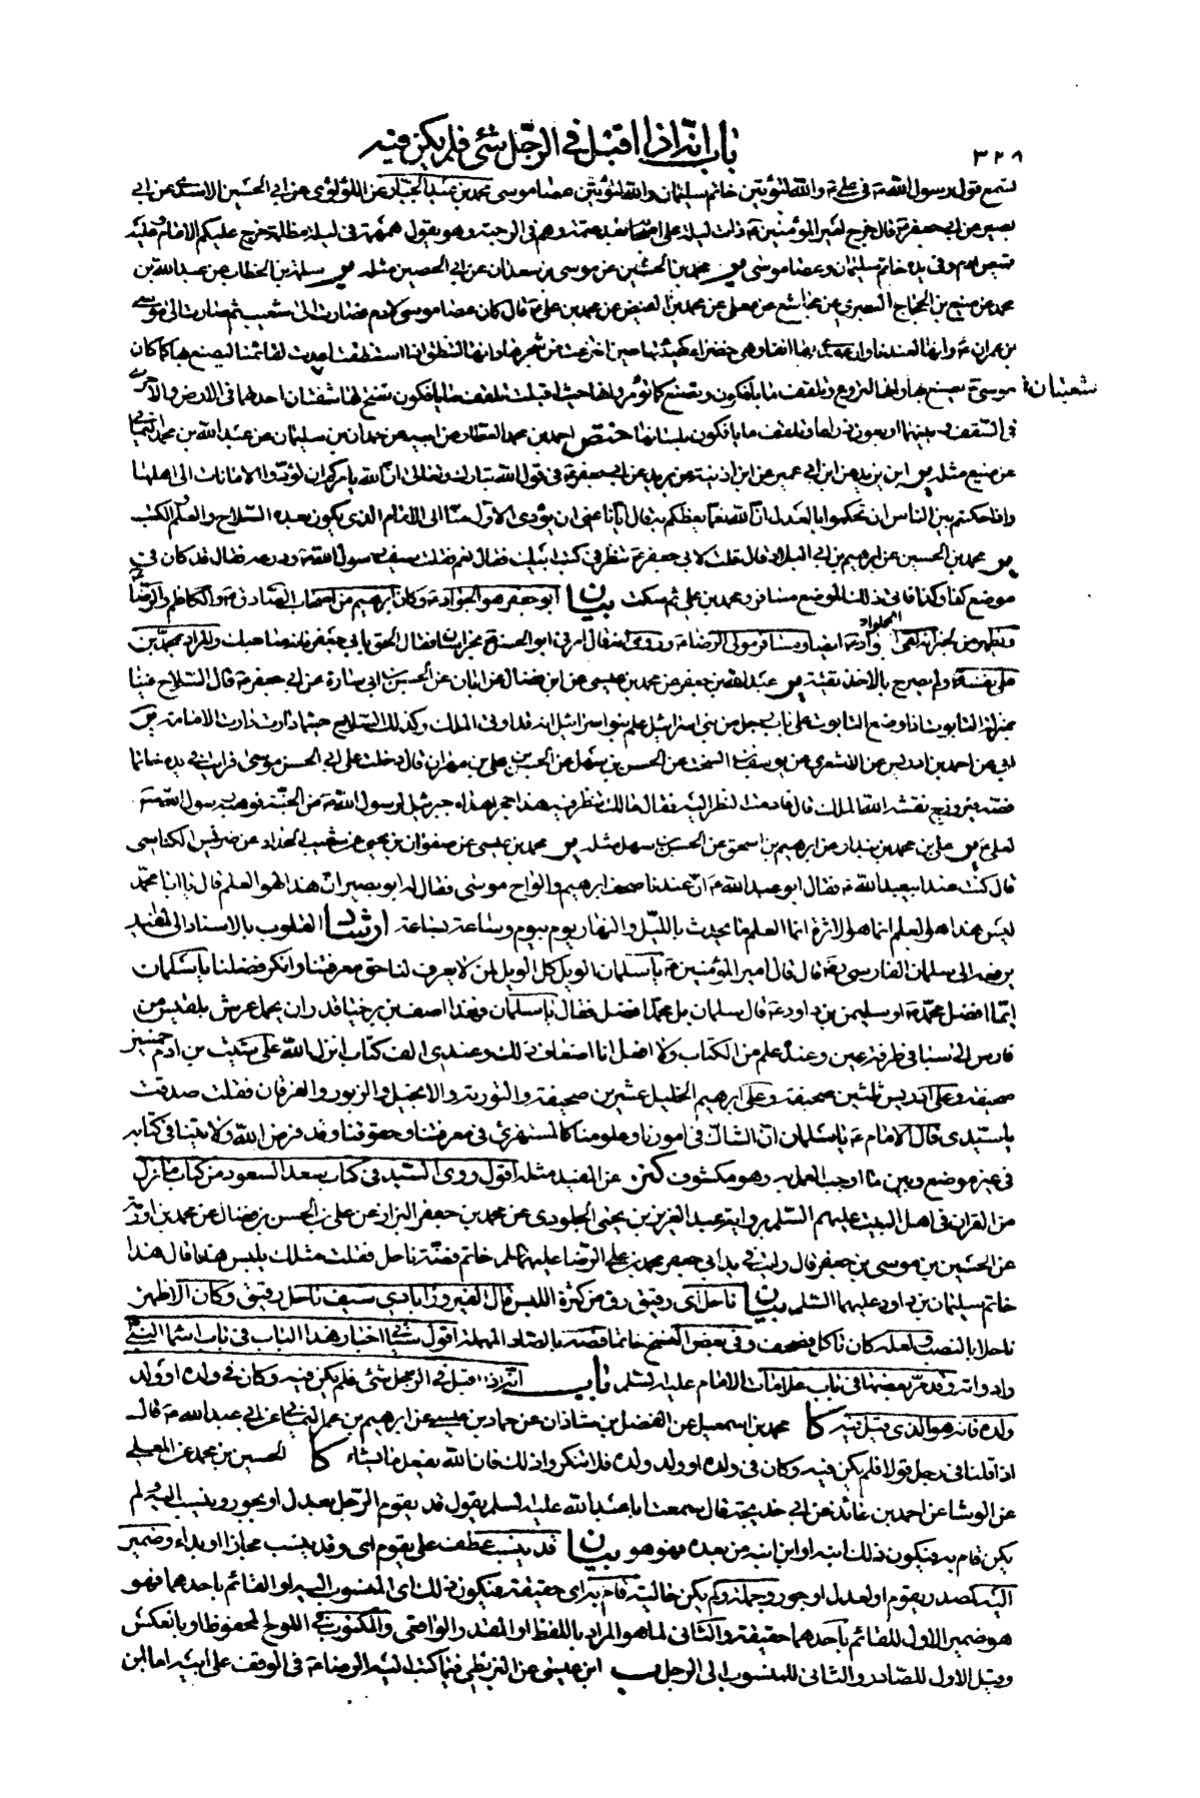 باب انّه اذا قيل في الرّجل شئ فلم يكن فيه
٣٢٨
لستم قول رسول الله ص في علي ع والله لتؤتين خاتم سليمان والله لتؤتين عصا موسى محمد بن عبد الجبار عن اللؤلؤي عن ابي الحسين الاسدي عن ابي
بصير عن ابي جعفر ع قال خرج امير المؤمنين ع ذات ليلة على اصحابه بعد عتمة وهم في الرحبة وهو يقول همهمة في ليلة مظلمة خرج عليكم الامام وعليه
قميص ادم وفي يده خاتم سليمان وعصا موسى ير محمد بن الحسين عن موسى بن سعدان عن ابي الحصين مثله ير سلمة بن الخطاب عن عبد الله بن
محمد عن منيع بن الحجاج البصري عن مجاشع عن معلى عن محمد بن الفيض عن محمد بن علي ع قال كان عصا موسى لادم فصارت الى شعيب ثم صارت الى موسى
بن عمران ع وانها لعندنا وان عهدي بها انفا وهي خضراء كهيئتها حين انتزعت من شجرها وانها لتنطق اذا استنطقت اعدت لقائمنا ليصنع بها كما كان
موسى ع يصنع بها وانها لتروع وتلقف ما يأفكون وتصنع كما تؤمر وانها حيث اقبلت تلقف ما يأفكون تفتح لها شفتان احدهما في الارض والاخرى
شعبتان
في السّقف وبينهما اربعون ذراعا وتلقف ما يأفكون بلسانها ختص احمد بن محمد العطار عن ابيه عن حمدان بن سليمان عن عبد الله بن محمد اليماني
عن منيع مثله ير ابن يزيد عن ابن ابي عمير عن ابن اذينة عن بريد عن ابي جعفر ع في قول الله تبارك وتعالى انّ الله يأمركم ان تؤدّوا الامانات الى اهلها
واذا حكمتم بين الناس ان تحكموا بالعدل انّ الله نعمّا يعظكم به قال ايّانا عنى ان يؤدي الاوّل منّا الى الامام الذي يكون بعده السّلاح والعلم والكتب
ير محمد بن الحسين عن ابراهيم بن ابي البلاد قال قلت لابي جعفر ع نظر في كتب ابيك فقال نعم فقلت سيف رسول الله ص ودرعه فقال قد كان في
موضع كذا وكذا فاتى ذلك الموضع مسافر ومحمد بن علي ثم سكت بيان ابو جعفر هو الجواد ع وكان ابرهيم من اصحاب الصّادق ع والكاظم والرضا
الجواد
علي نفسه ع ولم يصرح بالاخذ تقيّة ير عبد الله بن جعفر عن محمد بن عيسى عن ابن فضال عن ابان عن الحسين بن ابي سارة عن ابي جعفر ع قال السّلاح فينا
بمنزلة التابوت اذا وضع التابوت على باب رجل من بني اسرائيل علم بنو اسرائيل انه قد اوتي الملك وكذلك السّلاح حيثما دارت دارت الامامة ير
ابي عن احمد بن ادريس عن الاشعري عن يوسف بن السخت عن الحسن بن سهل عن الحسين بن علي بن مهران قال دخلت على ابي الحسن موسى ع فرايت في يده خاتما
فصّه فيروزج نقشه الله الملك قال فادمت النظر اليه فقال مالك تنظر فيه هذا حجر اهداه جبرئيل لرسول الله ص من الجنّة فوهبه رسول الله ص
لعلي ع ير علي بن محمد بن بندار عن ابرهيم بن اسحق عن الحسن بن سهل مثله ير محمد بن عيسى عن صفوان بن يحيى عن شعيب الحداد عن ضريس الكناسي
قال كنت عند ابي عبد الله ع فقال ابو عبد الله ع انّ عندنا صحف ابرهيم والواح موسى فقال له ابو بصير انّ هذا لهو العلم قال يا ابا محمّد
ليس هذا هو العلم انما هو الاثرة انما العلم ما يحدث باللّيل والنهار يوم بيوم وساعة بساعة ارشاد القلوب بالاسناد الى المفيد
يرفعه الى سلمان الفارسي رض قال قال امير المؤمنين ع يا سلمان الويل كل الويل لمن لا يعرف لنا حق معرفتنا وانكر فضلنا يا سلمان
ايّما افضل محمّد ص او سليمن بن داود ع قال سلمان بل محمّد افضل فقال يا سلمان فهذا اصف بن برخيا قدر ان يحمل عرش بلقيس من
فارس الى سبا في طرفة عين وعنده علم من الكتاب ولا افعل انا اضعاف ذلك وعندي الف كتاب انزل الله على شيث بن ادم خمسين
صحيفة وعلى ادريس ثلثين صحيفة وعلى ابرهيم الخليل عشرين صحيفة والتورية والانجيل والزبور والفرقان فقلت صدقت
يا سيّدي قال الامام ع يا سلمان انّ الشاك في امورنا وعلومنا كالمستهزئ في معرفتنا وحقوقنا وقد فرض الله ولايتنا في كتابه
في غير موضع وبين ما اوجب العمل به وهو مكشوف كنز عن المفيد مثله اقول روى السّيد في كتاب سعد السعود من كتاب ما نزل
من القران في اهل البيت عليهم السّلم برواية عبد العزيز بن يحيى الجلودي عن محمد بن جعفر البزاز عن علي بن الحسن بن فضال عن محمد بن اورمة
عن الحسين بن موسى بن جعفر قال رايت في يد ابي جعفر محمد بن علي الرّضا عليهما السلم خاتم فضّة ناحل فقلت مثلك يلبس هذا قال هذا
خاتم سليمان بن داود عليهما السّلم بيان ناحل اي رقيق رق من كثرة اللبس قال الفيروزابادي سيف ناحل رقيق وكان الاظهر
ناحلا بالنصب ولعله كان ناكل فصحف وفي بعض النسخ خاتما فصّه بالصاد المهملة اقول سيأتي اخبار هذا الباب في باب اسماء النبيّ
وادواته وقد مرّ بعضها في باب علامات الامام عليه السّلم باب انّه اذا قيل في الرجل شئ فلم يكن فيه وكان في ولده او ولد
ولده فانه هو الذي قيل فيه كا محمد بن اسمعيل عن الفضل بن شاذان عن حماد بن عيسى عن ابرهيم بن عمر اليماني عن ابي عبد الله ع قال
اذا قلنا في رجل قولا فلم يكن فيه وكان في ولده او ولد ولده فلا تنكروا ذلك فان الله يفعل ما يشاء كا الحسين بن محمد عن المعلى
عن الوشا عن احمد بن عائذ عن ابي خديجة قال سمعت ابا عبد الله عليه السلم يقول قد يقوم الرّجل بعدل او بجور وينسب اليه ولم
يكن قام به فيكون ذلك ابنه او ابن ابنه من بعده فهو هو بيان قد ينسب عطف على يقوم اي وقد ينسب مجازا او بداء وضمير
اليه لمصدر يقوم او لعدل او جور وجملة ولم يكن حالية قام به اي حقيقة فيكون ذلك اي المنسوب اليه او القائم باحدهما فهو
هو ضمير الاول للقائم باحدهما حقيقة والثاني لما هو المراد باللفظ او المقدر الواقعي والمكتوب في اللوح المحفوظ او بالعكس
وقيل الاول للصّادر والثاني للمنسوب الى الرجل ب ابن عيسى عن البزنطي فيما كتب اليه الرضا ع في الوقف على ابيه اما ابن